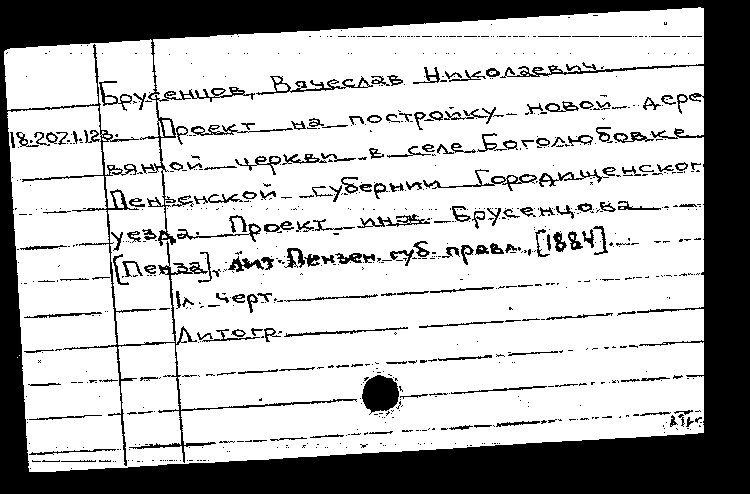 Брусенцов, Вячеслав Николаевич.
18.202.1.123. Проект на постройку новой дере
вянной церкви в селе Боголюбовке
Пензенской губернии Городищенског
уезда. Проект инж. Брусенцова.
[Пенза], лит. Пензен. губ. правл., [1884].
1 л. черт.
Литогр.